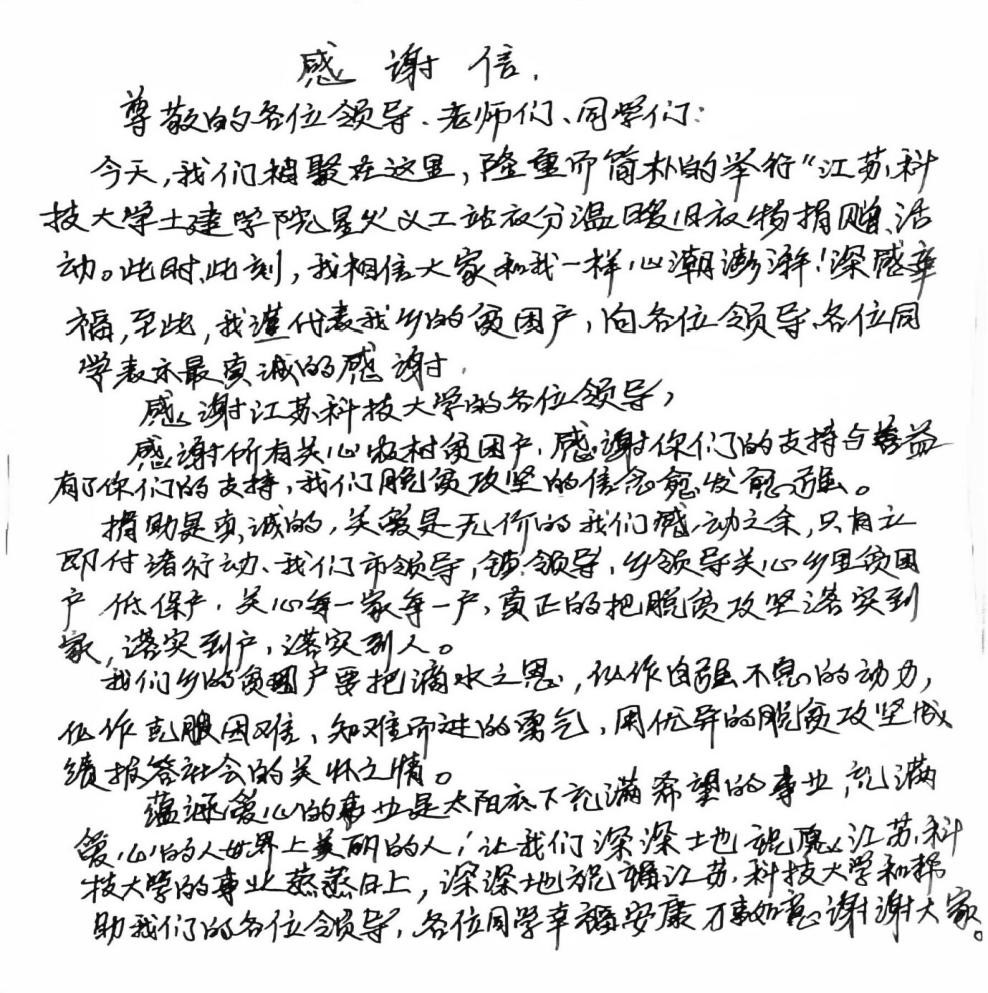 感谢信.
尊敬的各位领导、老师们、同学们:
今天,我们相聚在这里,隆重而简朴的举行"江苏科
技大学土建学院星火义工站衣分温暖旧衣物捐赠、活
动。此时此刻,我相信大家和我一样,心潮澎湃!深感幸
福,至此,我谨代表我乡的贫困户,向各位领导、各位同
学表示最真诚的感谢.
感谢江苏科技大学的各位领导,
感谢所有关心农村贫困户.感谢你们的支持与善益
有了你们的支持,我们脱贫攻坚的信念愈发愈强。
捐助是真诚的,关爱是无价的我们感动之余,只有立
即付诸行动、我们市领导,镇领导,乡领导关心乡里贫困
户低保户.关心每一家每一户,真正的把脱贫攻坚落实到
家,落实到户,落实到人。
我们乡的贫困户要把滴水之恩,化作自强不息的动力,
化作克服困难、知难而进的勇气,用优异的脱贫攻坚成
绩报答社会的关怀之情。
蕴涵爱心的事业是太阳底下充满希望的事业,充满
爱心的人世界上美丽的人!让我们深深地祝愿江苏科
技大学的事业蒸蒸日上,深深地祝福江苏科技大学和帮
助我们的各位领导,各位同学幸福安康万事如意谢谢大家。